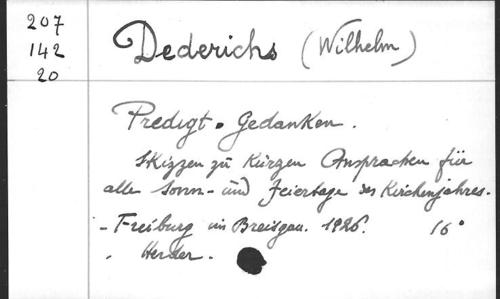 207
142
20
Dederichs (Wilhelm)
Predigt-Gedanken.
Skizzen zu kurzen Ansprachen für
alle Sonn- und Feiertage des Kirchenjahres.
- Freiburg im Breisgau. 1926. 16°
. Herder.